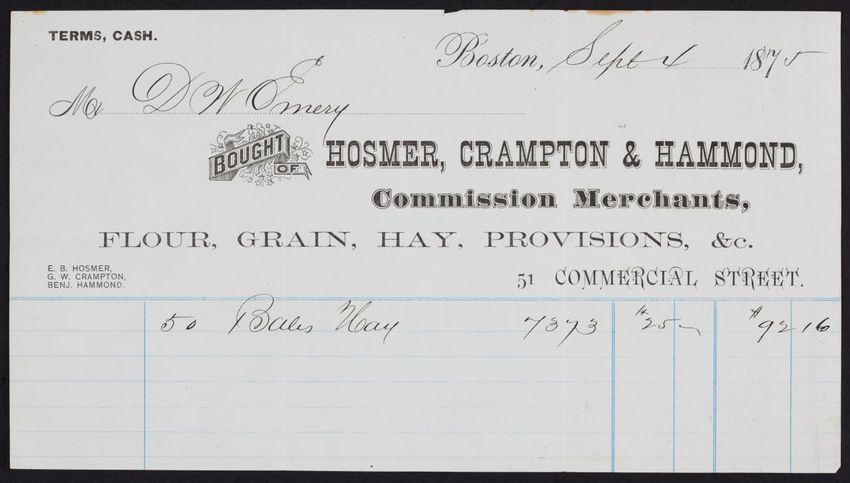 TERMS, CASH.
Boston, Sept 4 1875
Mr D W Emery
BOUGHT OF HOSMER, CRAMPTON & HAMMOND,
Commission Merchants,
FLOUR, GRAIN, HAY, PROVISIONS, &c.
E. B. HOSMER,
G. W. CRAMPTON,
BENJ. HAMMOND.
51 COMMERCIAL STREET.
50 Bales Hay 7373 $25– $92 16